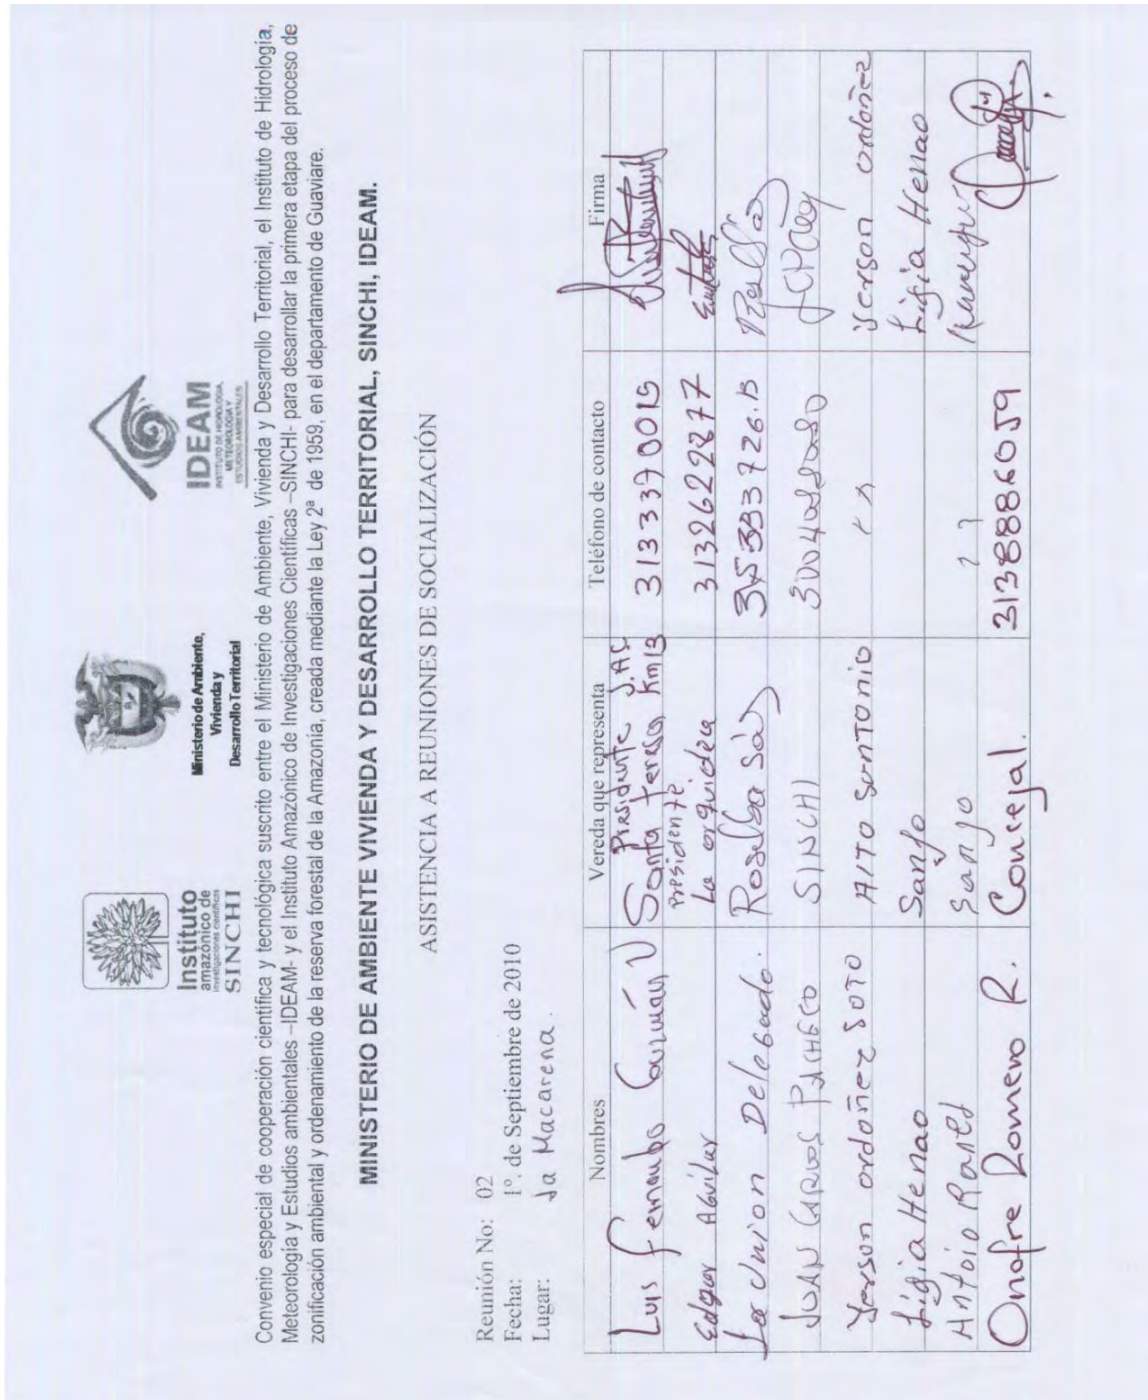 Instituto
amazónico de
investigaciones científicas
SINCHI
Ministerio de Ambiente,
Vivienda y
Desarrollo Territorial
IDEAM
INSTITUTO DE HIDROLOGIA,
METEOROLOGIA Y
ESTUDIOS AMBIENTALES
Convenio especial de cooperación científica y tecnológica suscrito entre el Ministerio de Ambiente, Vivienda y Desarrollo Territorial, el Instituto de Hidrología,
Meteorología y Estudios ambientales –IDEAM- y el Instituto Amazónico de Investigaciones Científicas –SINCHI- para desarrollar la primera etapa del proceso de
zonificación ambiental y ordenamiento de la reserva forestal de la Amazonia, creada mediante la Ley 2ª de 1959, en el departamento de Guaviare.
MINISTERIO DE AMBIENTE VIVIENDA Y DESARROLLO TERRITORIAL, SINCHI, IDEAM.
ASISTENCIA A REUNIONES DE SOCIALIZACIÓN
Reunión No: 02
Fecha: 1º. de Septiembre de 2010
Lugar: La Macarena.
Nombres Vereda que representa Teléfono de contacto Firma
Luis Fernando Guzmán V Presidente J.AC Santa Teresa Km13 3133390015
Edgar Aguilar Presidente La orquidea 3132622877
La Union Delegado. Roselba
JUAN CARLOS PACHECO SINCHI
Yerson ordoñez SOTO AlTO SanTOnio Yerson ordoñez
Ligia Henao Sanjo Ligia Henao
Antoio Sanjo
Onofre Romero R. Concejal. 3138886059